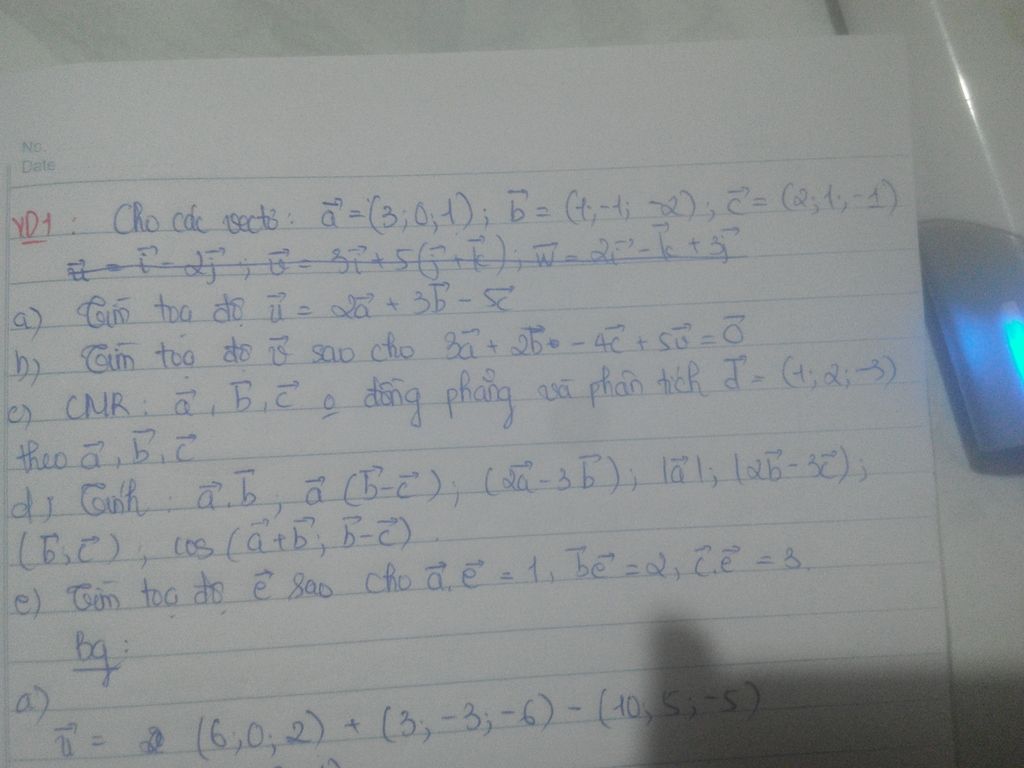 No.
Date
VD1: Cho các vectơ: a⃗ = (3; 0; 1); b⃗ = (1; -1; -2); c⃗ = (2; 1; -1)
u⃗ = i⃗ - 2j⃗; v⃗ = 3i⃗ + 5(j⃗ + k⃗); w⃗ = 2i⃗ - k⃗ + 3j⃗
a) Tìm toạ độ u⃗ = 2a⃗ + 3b⃗ - 5c⃗
b) Tìm toạ độ v⃗ sao cho 3a⃗ + 2b⃗ - 4c⃗ + 5v⃗ = 0⃗
c) CMR: a⃗, b⃗, c⃗ đồng phẳng và phân tích d⃗ = (1; 2; -3)
theo a⃗, b⃗, c⃗
d) Tính: a⃗.b⃗; a⃗(b⃗ - c⃗); (2a⃗ - 3b⃗); |a⃗|; |2b⃗ - 3c⃗);
(b⃗; c⃗); cos(a⃗ + b⃗; b⃗ - c⃗).
e) Tìm toạ độ e⃗ sao cho a⃗.e⃗ = 1, b⃗e⃗ = 2, c⃗.e⃗ = 3.
Bg:
a)
u⃗ = (6; 0; 2) + (3; -3; -6) - (10; 5; -5)